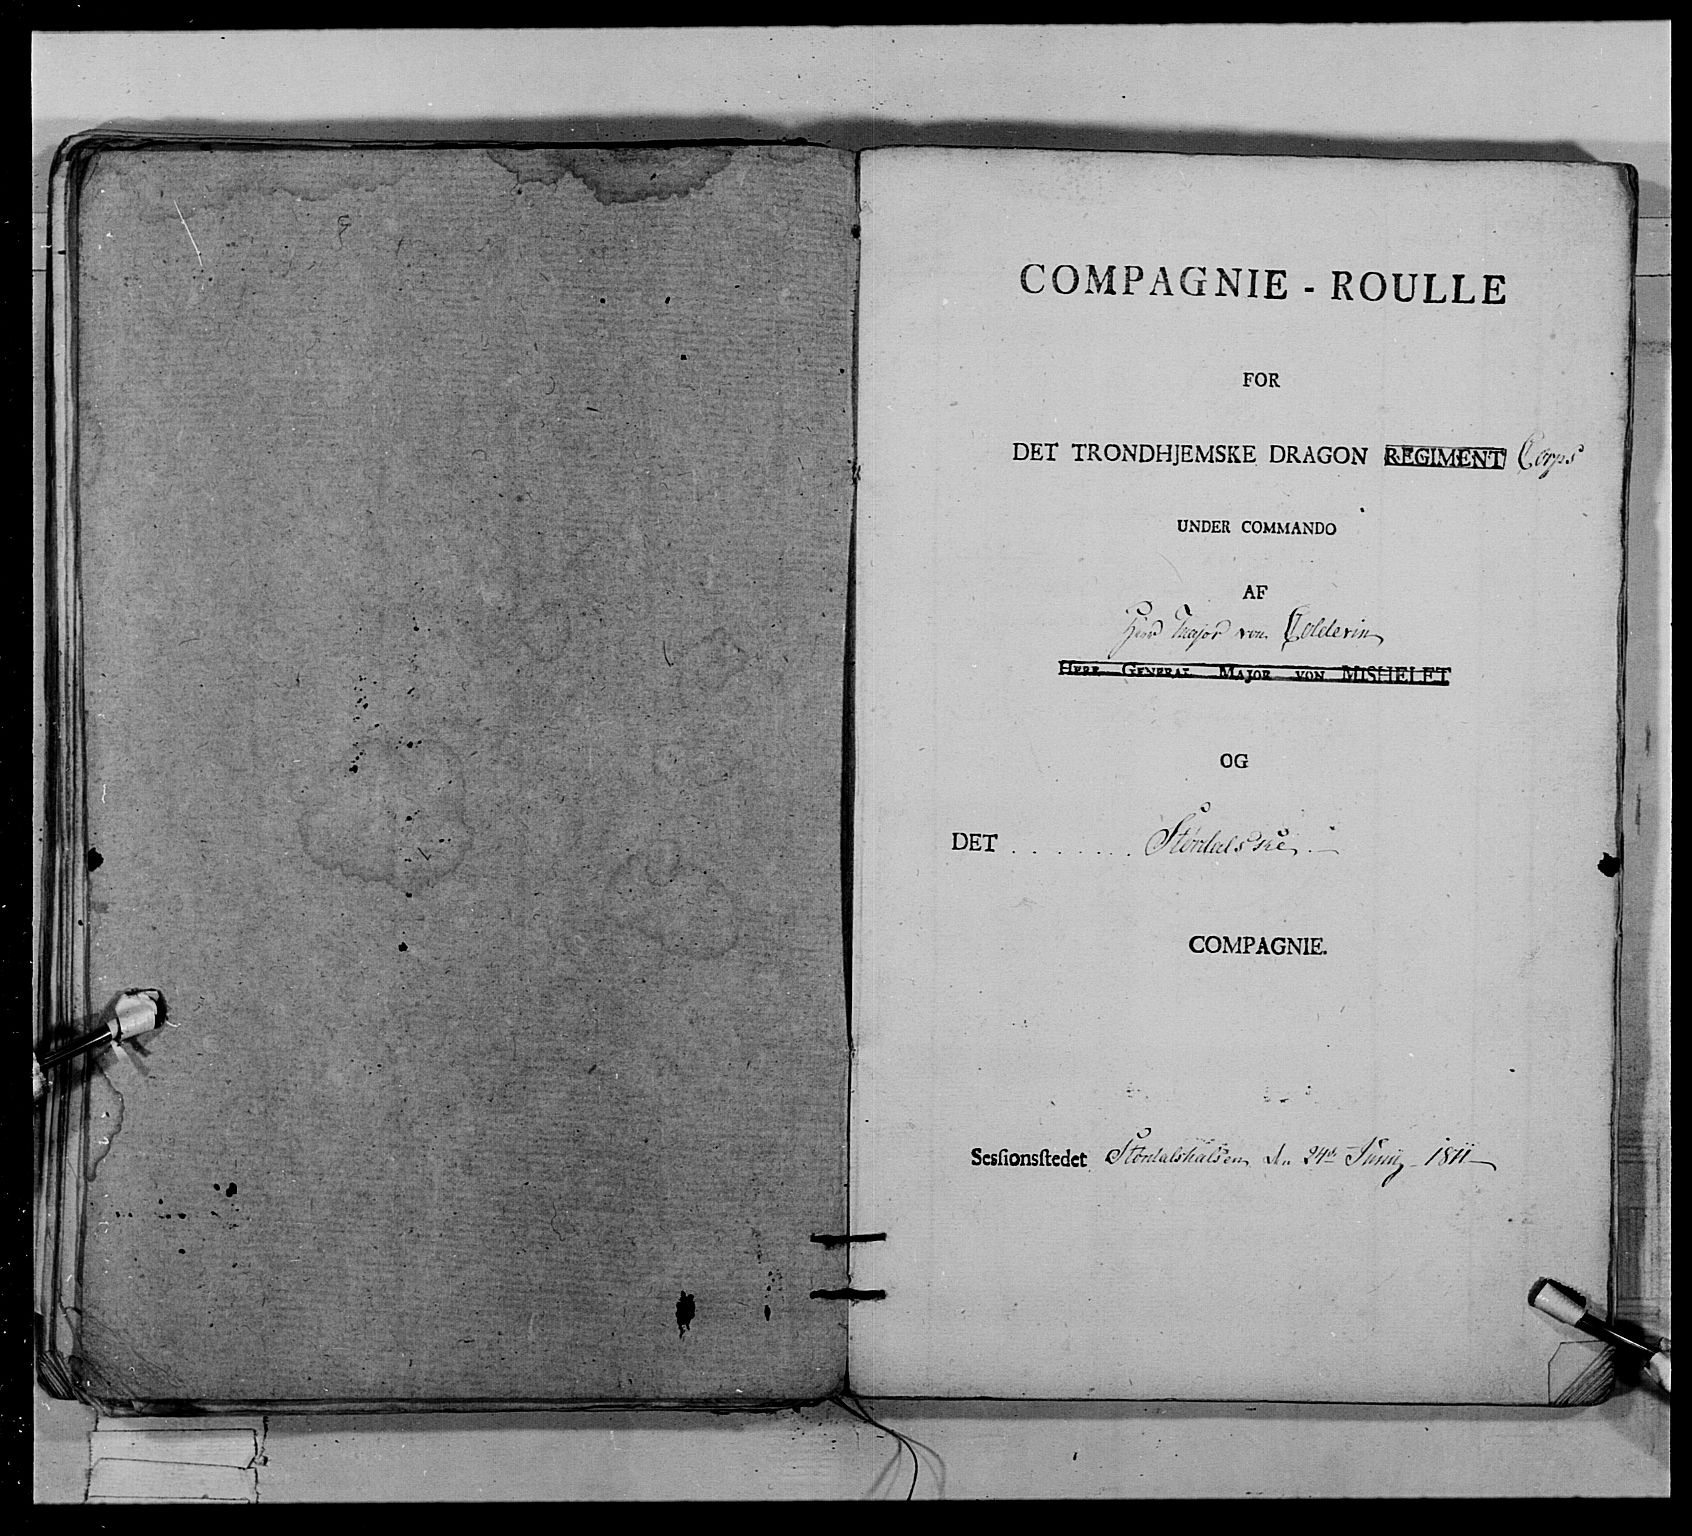 COMPAGNIE - ROULLE
FOR
DET TRONDHJEMSKE DRAGON REGIMENT Corps
UNDER COMMANDO
AF
Herr Major von Colderin
HERR GENERAL MAJOR VON MISHELET
OG
DET . . . . . . . Størdalske . –
COMPAGNIE.
Sessionsstedet Størdalshalsen den 24de Junij 1811